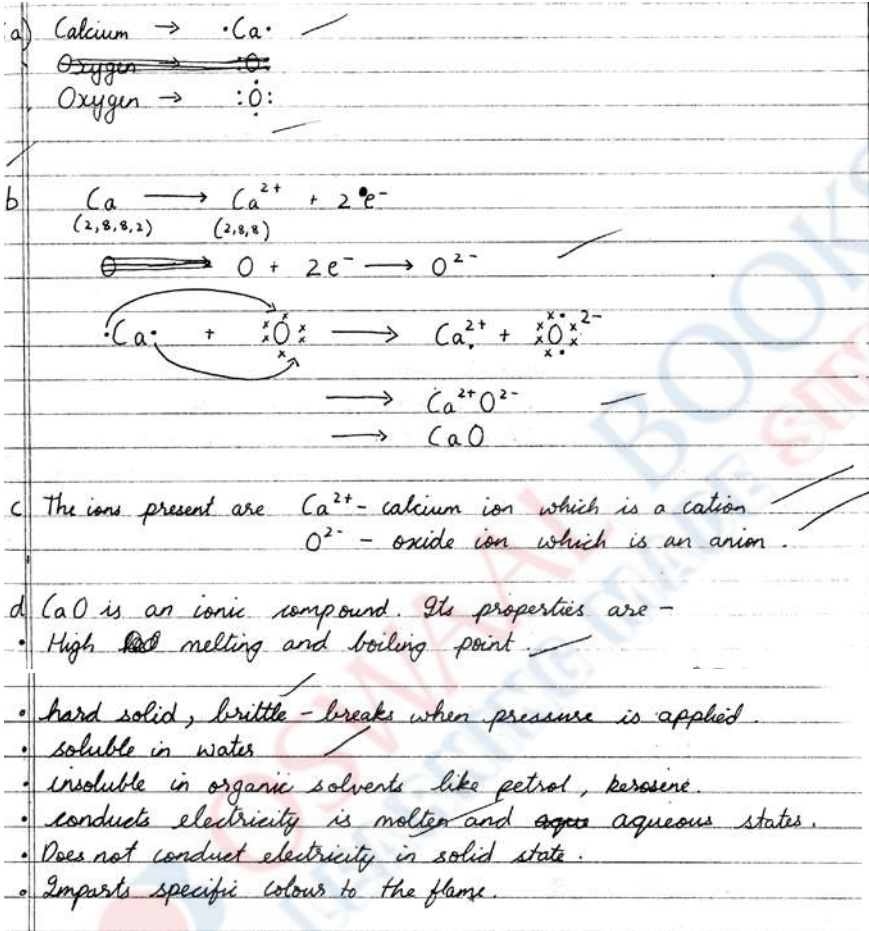 a) Calcium → ·Ca·
Oxygen → :O:
Oxygen → :Ö:
b Ca → Ca²⁺ + 2e⁻
(2,8,8,2) (2,8,8)
O + 2e⁻ → O²⁻
·Ca· + O → Ca²⁺ + O²⁻
→ Ca²⁺O²⁻
→ CaO
c The ions present are Ca²⁺ - calcium ion which is a cation
O²⁻ - oxide ion which is an anion.
d CaO is an ionic compound. Its properties are -
• High melting and boiling point.
• hard solid, brittle - breaks when pressure is applied.
• soluble in water
• insoluble in organic solvents like petrol, kerosene.
• conducts electricity is molten and aqueous states.
• Does not conduct electricity in solid state.
• Imparts specific colour to the flame.
OSWAAL BOOKS
LEARNING MADE SIMPLE